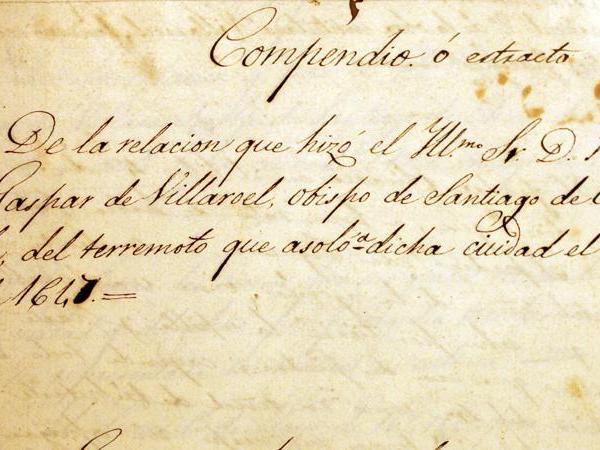 Compendio. ó estracto
De la relacion que hizó el Ill.mo Sr. D.
Gaspar de Villaroel, obispo de Santiago de
del terremoto que asoló a dicha ciudad el
1647.=